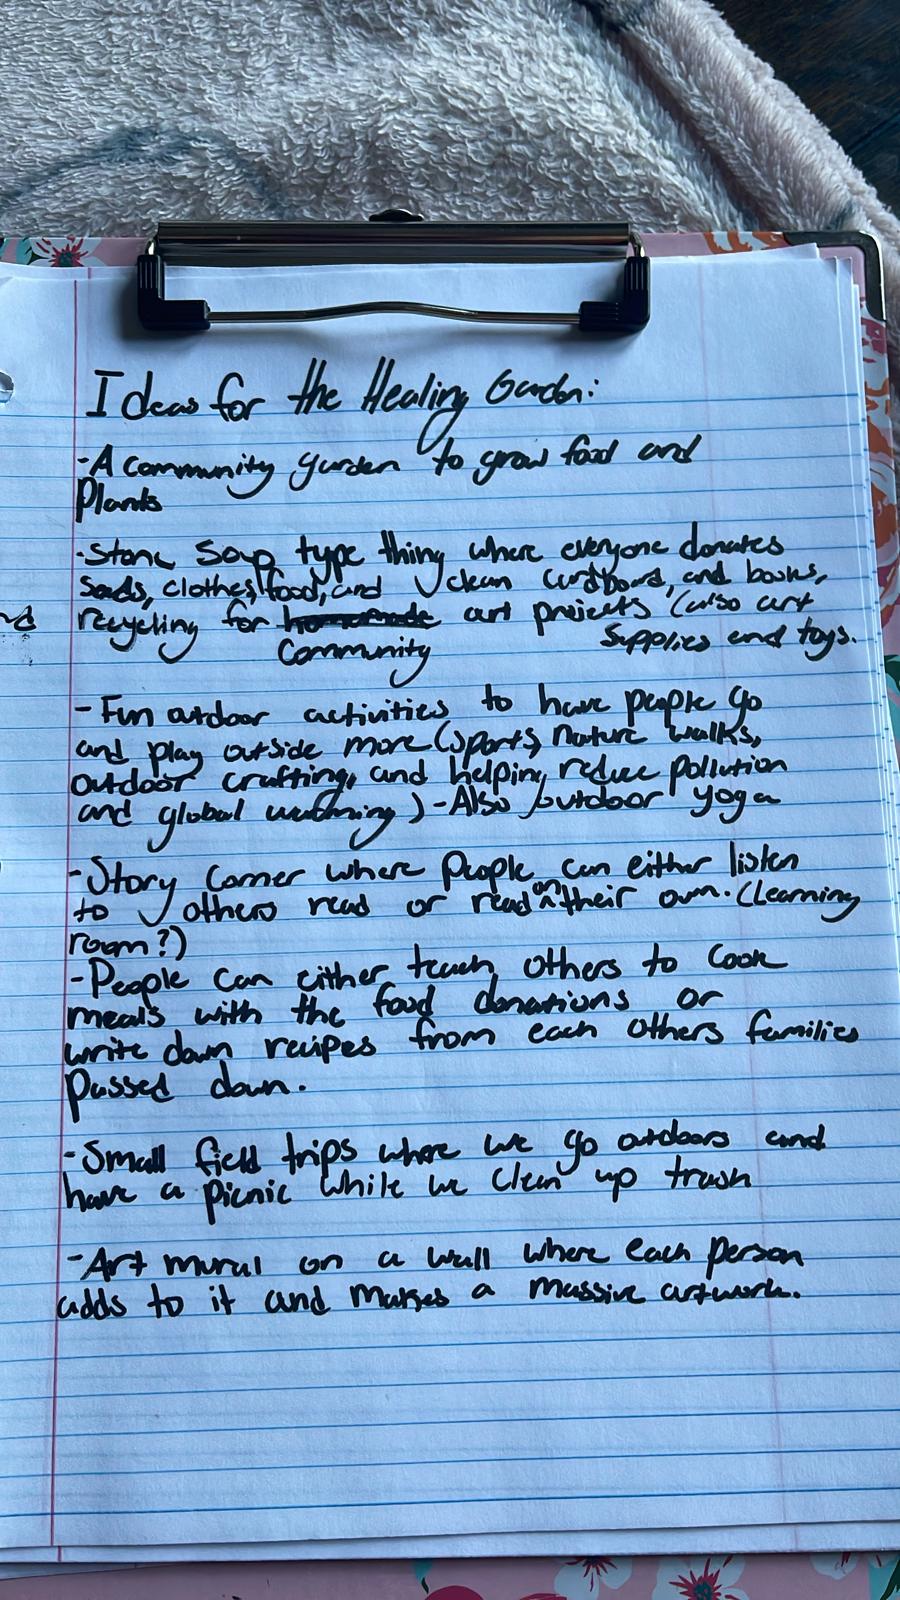 Ideas for the Healing Garden:
-A community garden to grow food and
Plants
-Stone Soup type thing where everyone donates
seeds, clothes, food, and clean cardboard, and books,
recycling for homemade art projects (also art
Community supplies and toys.
-Fun outdoor activities to have people go
and play outside more (sports, nature walks,
outdoor crafting, and helping reduce pollution
and global warming) -Also outdoor yoga
-Story Corner where people can either listen
to others read or read on their own. (Learning
room?)
-People can either teach others to cook
meals with the food donations or
write down recipes from each others families
passed down.
-Small field trips where we go outdoors and
have a picnic while we clean up trash
-Art mural on a wall where each person
adds to it and makes a massive artwork.